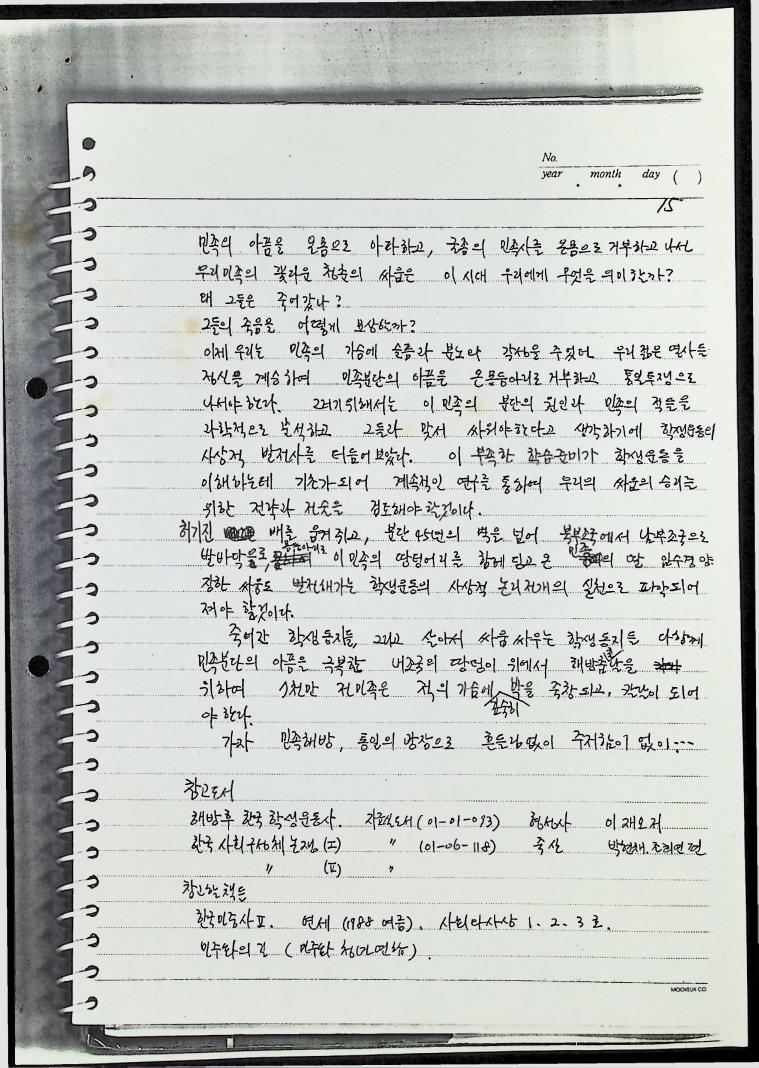 No.
year month day ( )
15
민족의 아픔을 온몸으로 아파하고, 굴종의 민족사를 온몸으로 거부하고 나선
우리민족의 꽃다운 청춘의 싸움은 이 시대 우리에게 무엇을 의미한가?
왜 그들은 죽어갔나?
그들의 죽음을 어떻게 보상한까?
이제 우리는 민족의 가슴에 슬픔과 분노와 각성을 주었던 우리 젊은 열사들
정신를 계승하여 민족분단의 아픔을 온몸둥아리로 거부하고 통일투쟁으로
나서야 한다. 그러기위해서는 이 민족의 분단의 원인과 민족의 적들을
과학적으로 분석하고 그들과 맞서 싸워야한다고 생각하기에 학생운동의
사상적 발전사를 더듬어 보았다. 이 부족한 학습준비가 학생운동을
이해하는데 기초가되어 계속적인 연구를 통하여 우리의 싸움의 승리를
위한 전략과 전술을 검토해야 할것이다.
허기진 배를 움켜쥐고, 분단 45년의 벽을 넘어 북부조국에서 남부조국으로
발바닥으로, 몸둥아리로 이 민족의 땅덩어리를 함께 딛고 온 민족의 딸 임수경양
장한 싸움도 발전해가는 학생운동의 사상적 논리전개의 실천으로 파악되어
져야 할것이다.
죽어간 학생동지들, 그리고 살아서 싸움 싸우는 학생동지들 다함께
민족분단의 아픔을 극복한 내조국의 땅덩이 위에서 해방춤을
위하여 7천만 전민족은 적의 가슴에 깊숙히 박을 죽창되고, 칼날이 되어
야 한다.
가자 민족해방, 통일의 광장으로 흔들림없이 주저함이 없이...
참고도서
해방후 한국 학생운동사. 자료실도서(01-01-093) 형성사 이재오 저
한국 사회구성체 논쟁 (I) 〃 (01-06-118) 죽산 박현채. 조희연 편
〃 (II) 〃
참고한 책들
한국민중사 II. 연세 (1988 여름). 사회와사상 1. 2. 3 호.
민주화의 길 (민주화 청년연합).
MOOKEUK CO